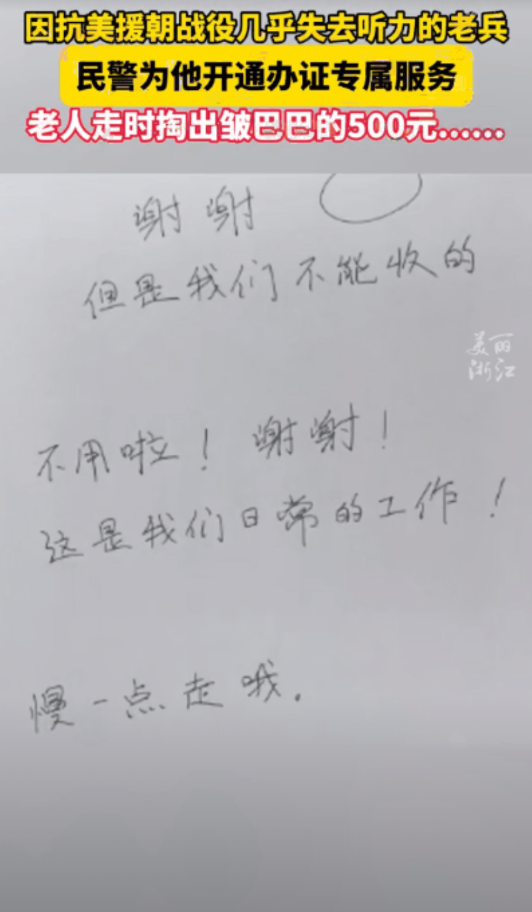 因抗美援朝战役几乎失去听力的老兵
民警为他开通办证专属服务
老人走时掏出皱巴巴的500元......
谢谢
但是我们不能收的
美丽
浙江
不用啦！谢谢！
这是我们日常的工作！
慢一点走哦.